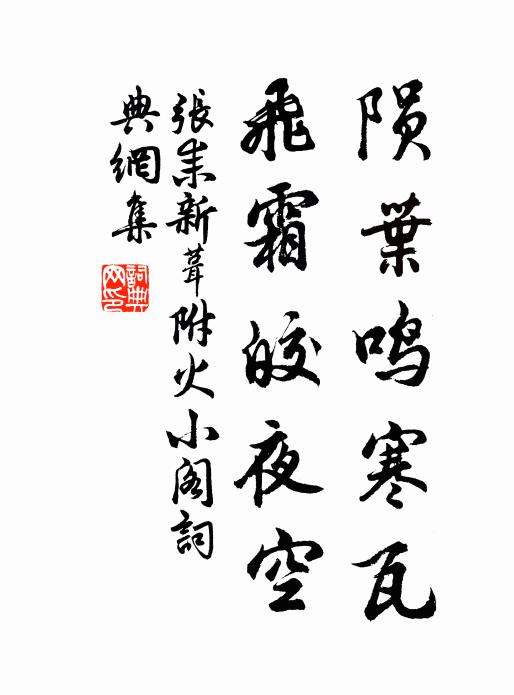 陨葉鸣寒瓦
飛霜皎夜空
張耒新葺附火小阁詞
典網集
詞典网印